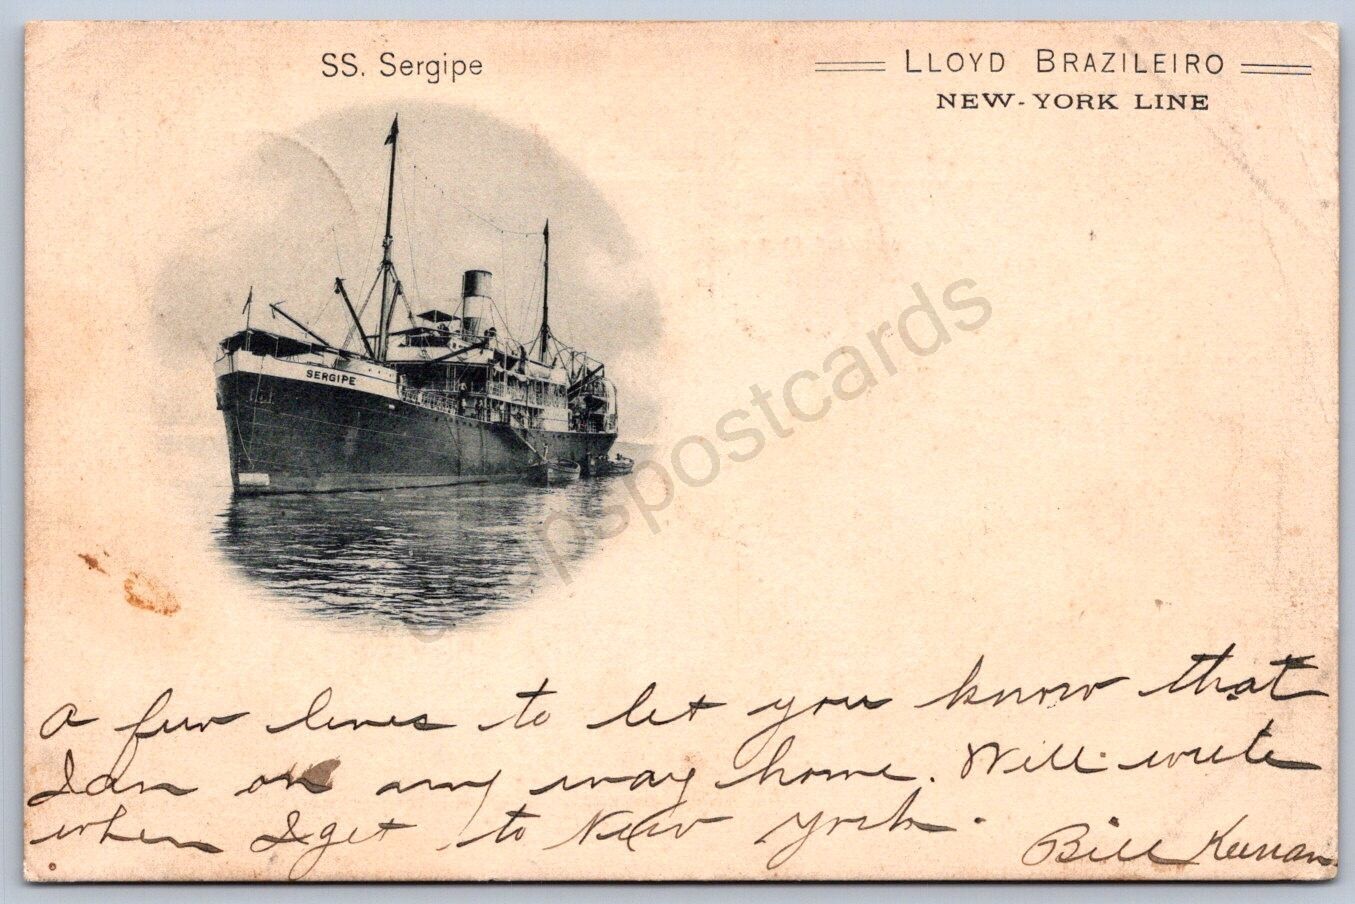 SS. Sergipe
LLOYD BRAZILEIRO
NEW-YORK LINE
SERGIPE
a few lines to let you know that
I am on my way home. Will write
when I get to New York.
Bill Keenan